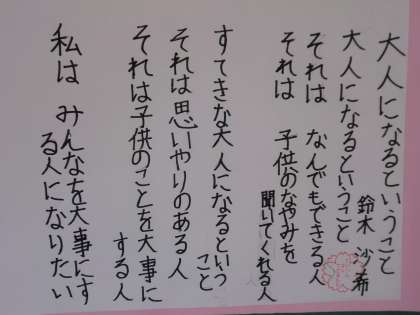 大人になるということ
鈴木 沙希
大人になるということ
それは なんでもできる人
それは 子供のなやみを
聞いてくれる人
すてきな大人になるという
こと
それは思いやりのある人
それは子供のことを大事に
する人
私は みんなを大事にす
る人になりたい